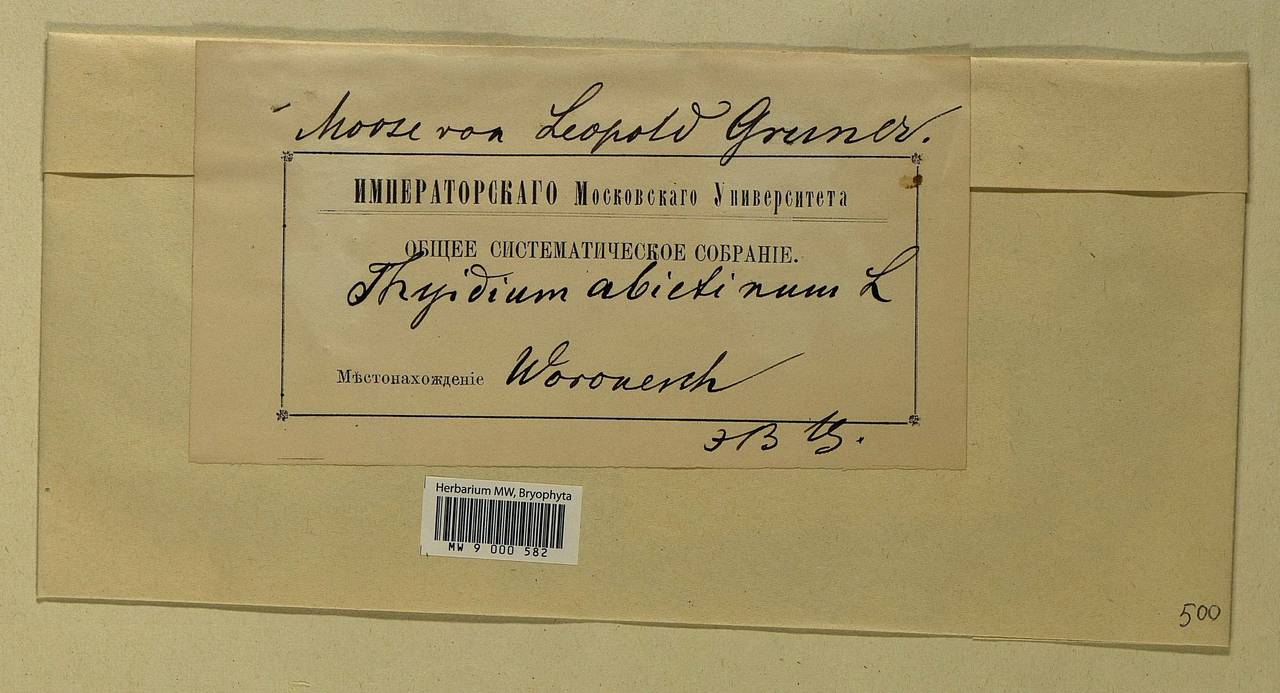 Moose von Leopold Gruner.
ИМПЕРАТОРСКАГО Московскаго Университета
ОБЩЕЕ СИСТЕМАТИЧЕСКОЕ СОБРАНІЕ.
Thyidium abietinum L
Мѣстонахожденіе Woronesch
Herbarium MW, Bryophyta
MW 9 000 582
500